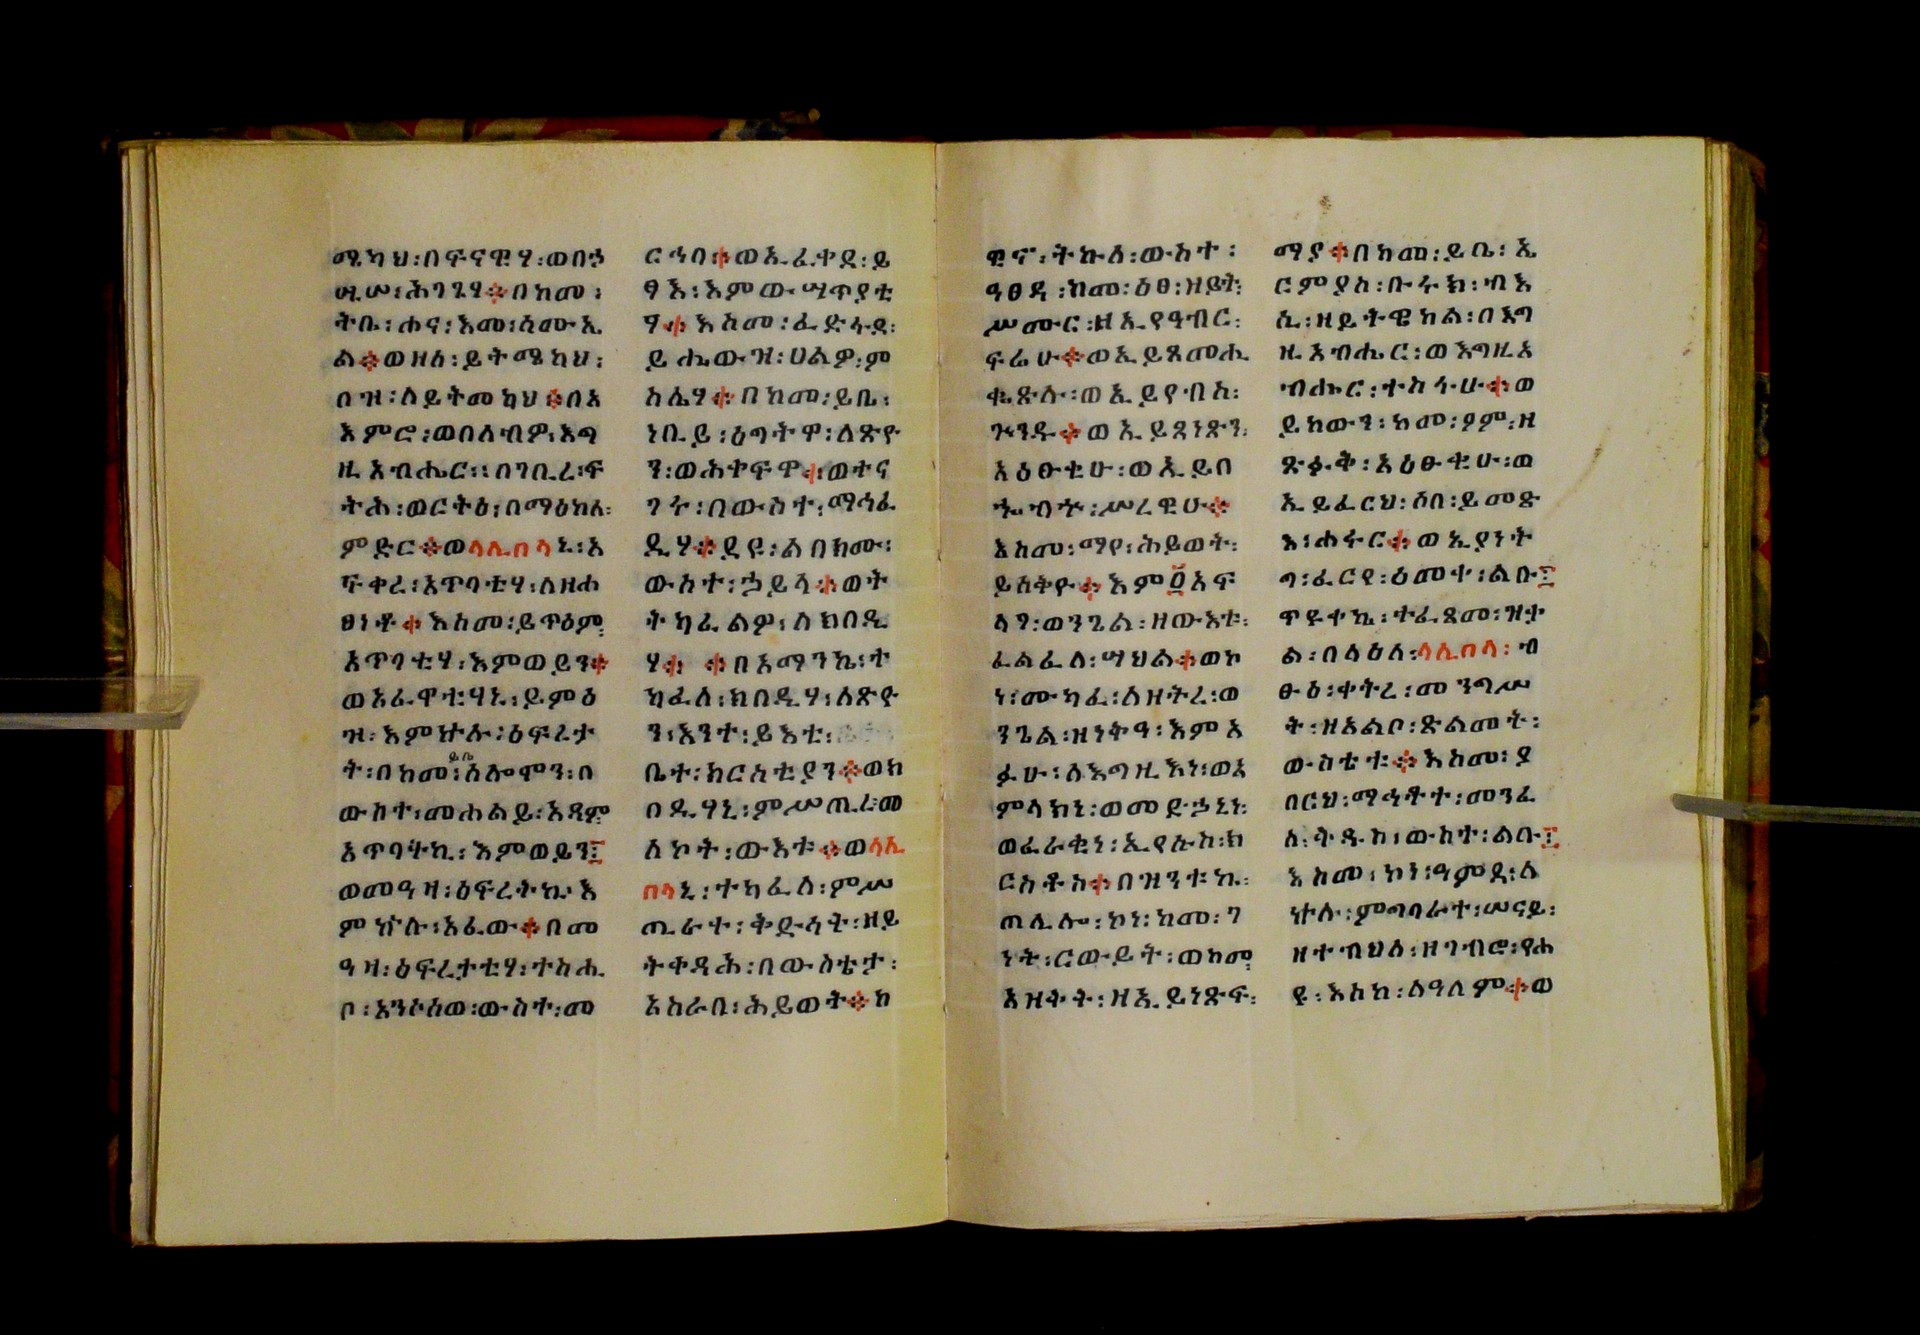 ሚካህ፡በፍናዊሃ፡ወበኃ
ሢሦ፡ሕገጊሃ።በከመ፡
ትቤ፡ሐና፡እመ፡ሳሙኤ
ል።ወዘሰ፡ይትሜካህ፡
በዝ፡ለይትመካህ።በአ
እምሮ፡ወበለብዎ፡እግ
ዚአብሔር፡፡በገቢረ፡ፍ
ትሕ፡ወርትዕ፡በማዕከለ፡
ምድር።ወላሊበላኒ፡አ
ፍቀረ፡አጥባቲሃ፡ለዘሐ
ፀነቶ።እስመ፡ይጥዕም፡
አጥባቲሃ፡እምወይን።
ወአፈዋቲሃኒ፡ይምዕ
ዝ፡እምኵሉ፡ዕፍረታ
ት፡በከመ፡ይቤ፡ሰሎሞን፡በ
ውስተ፡መሐልይ፡አዳም፡
አጥባትኪ፡እምወይን፤
ወመዓዛ፡ዕፍረትኪ፡እ
ምኵሉ፡አፈው።በመ
ዓዛ፡ዕፍረታቲሃ፡ተስሒ
ቦ፡አንሶሰወ፡ውስተ፡መ
ርኅባ።ወኢፈቀደ፡ይ
ፃእ፡እምውሣጥያቲ
ሃ።እስመ፡ፈድፋደ፡
ይሔውዝ፡ሀልዎ፡ም
ስሌሃ።በከመ፡ይቤ፡
ነቢይ፡ዕግትዋ፡ለጽዮ
ን፡ወሕቀፍዋ።ወተና
ገሩ፡በውስተ፡ማኅፈ
ዲሃ።ደዩ፡ልበክሙ፡
ውስተ፡ኃይላ።ወት
ትካፈልዎ፡ለክበዲ
ሃ። ።በአማንኬ፡ተ
ካፈለ፡ክበዲሃ፡ለጽዮ
ን፡እንተ፡ይእቲ፡
ቤተ፡ክርስቲያን።ወክ
በዲሃኒ፡ምሥጢረ፡መ
ለኮት፡ውእቱ።ወላሊ
በላኒ፡ተካፈለ፡ምሥ
ጢራተ፡ቅድሳት፡ዘይ
ትቀዳሕ፡በውስቴታ፡
አስራበ፡ሕይወት።ከ
ዊኖ፡ትኩለ፡ውስተ፡
ዓፀዳ፡ከመ፡ዕፀ፡ዘይት፡
ሥሙር፡ዘኢየዓብር፡
ፍሬሁ።ወኢይጸመሒ
ቈጽሉ፡ወኢይየብስ፡
ጕንዱ።ወኢይጸነጽን፡
አዕፁቂሁ፡ወኢይበ
ቍብኍ፡ሥረዊሁ።
እስመ፡ማየ፡ሕይወት፡
ይሰቅዮ።እም፬አፍ
ላግ፡ወንጌል፡ዘውእቱ፡
ፈልፈለ፡ሣህል።ወኮ
ነ፡ሙካፈ፡ለዘትረ፡ወ
ንጌል፡ዘነቅዓ፡እምአ
ፉሁ፡ለእግዚእነ፡ወአ
ምላክነ፡ወመድኃኒነ፡
ወፈራቂነ፡ኢየሱስ፡ክ
ርስቶስ።በዝንቱኬ፡
ጠሊሎ፡ኮነ፡ከመ፡ገ
ነት፡ርውይት፡ወከመ፡
አዝቅት፡ዘኢይነጽፍ፡
ማያ።በከመ፡ይቤ፡ኤ
ርምያስ፡ቡሩክ፡ብእ
ሲ፡ዘይትዌከል፡በእግ
ዚአብሔር፡ወእግዚአ
ብሔር፡ተስፋሁ።ወ
ይከውን፡ከመ፡ዖም፡ዘ
ጽፉቅ፡አዕፁቂሁ፡ወ
ኢይፈርህ፡ሶበ፡ይመጽ
እ፡ሐሩር።ወኢያነት
ግ፡ፈርየ፡ዕመተ፡ልቡ፤
ጥዩቀኬ፡ተፈጸመ፡ዝቃ
ል፡በላዕለ፡ላሊበላ፡ብ
ፁዕ፡ቀትረ፡መንግሥ
ት፡ዘአልቦ፡ጽልመት፡
ውስቴቱ።እስመ፡ያ
በርህ፡ማኅቶተ፡መንፈ
ስ፡ቅዱስ፡ውስተ፡ልቡ፤
እስመ፡ኮነ፡ዓምደ፡ለ
ኵሉ፡ምግባራተ፡ሠናይ፡
ዘተብህለ፡ዘገብሮ፡የሐ
ዩ፡እስከ፡ለዓለም።ወ